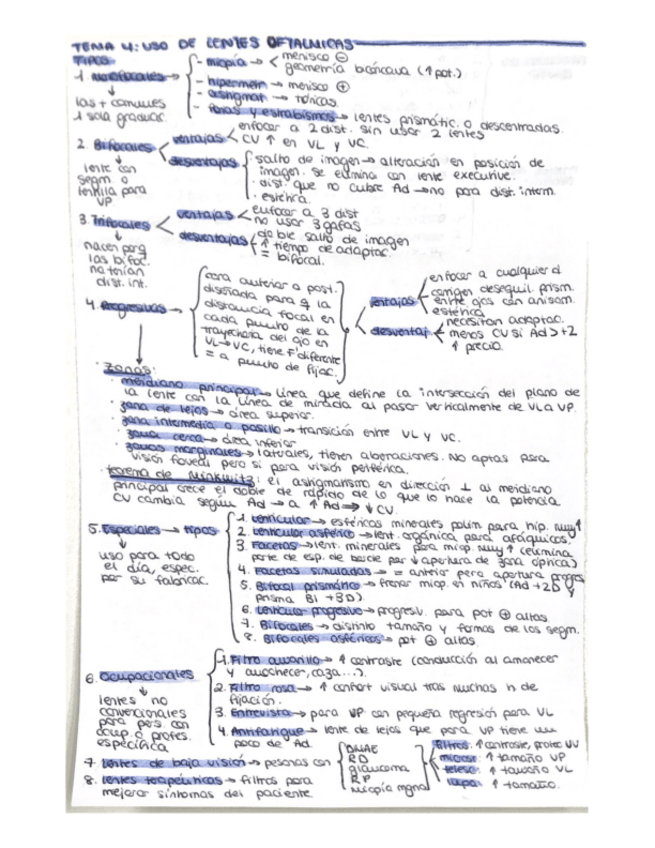 TEMA 4: USO DE LENTES OFTALMICAS
TIPOS
1. monofocales → - miopía → < menisco ⊖
geometría bicóncava (↑pot.)
- hipermetr → menisco ⊕
- astigmat → tóricas.
- forias y estrabismos → lentes prismátic. o descentradas.
las + comunes
1 sola graduac.
2. Bifocales < ventajas < enfocar a 2 dist. sin usar 2 lentes
CV ↑ en VL y VC.
desventajas { salto de imagen → alteración en posición de
imagen. se elimina con lente executive.
· dist. que no cubre Ad → no para dist. interm.
· estética.
lente con
segm. o
lentilla para
VP.
3. Trifocales < ventajas < enfocar a 3 dist
no usar 3 gafas
desventajas { doble salto de imagen
↑ tiempo de adaptac.
= bifocal.
nacen porq
las bifoc.
no tenían
dist. int.
4. Progresivas → { cara anterior o post.
diseñada para q la
distancia focal en
cada punto de la
trayectoria del ojo en
VL→VC, tiene F' diferente
= a punto de fijac. }
ventajas < enfocar a cualquier d
corrigen desequil. prism.
entre ojos con anisom.
estética
desventaj < necesitan adaptac.
menos CV si Ad > +2
↑ precio.
· zonas:
· meridiano principal → línea que define la intersección del plano de
la lente con la línea de mirada al pasar verticalmente de VL a VP.
· zona de lejos → área superior.
· zona intermedia o pasillo → transición entre VL y VC.
· zona cerca → área inferior
· zonas marginales → laterales, tienen aberraciones. No aptas para
visión foveal pero sí para visión periférica.
· teorema de Minkwitz: el astigmatismo en dirección ⊥ al meridiano
principal crece el doble de rápido de lo que lo hace la potencia
CV cambia según Ad → a ↑ Ad → ↓ CV.
5. Especiales → tipos
uso para todo
el día, espec.
por su fabricac.
1. Lenticular → esféricas minerales pulim para hip. muy ↑
2. Lenticular asférico → lent. orgánica para afáquicos.
3. Facetas → lent. minerales para miop. muy ↑ (elimina
parte de esp. de borde por ↓ apertura de zona óptica)
4. Facetas simuladas → = anterior pero apertura progres
5. Bifocal prismático → frenar miop. en niños (Ad +2D y
prisma BI +3D).
6. Lenticular progresivo → progresiv. para pot ⊕ altas.
7. Bifocales → distinto tamaño y formas de los segm.
8. Bifocales asféricos → pot ⊕ altas.
6. Ocupacionales
lentes no
convencionales
para pers. con
ocup. o profes.
específica
1. Filtro amarillo → ↑ contraste (conducción al amanecer
y anochecer, caza...).
2. Filtro rosa → ↑ confort visual tras muchas h de
fijación.
3. Entrevista → para VP con pequeña regresión para VL
4. Antifatigue → lente de lejos que para VP tiene un
poco de Ad.
7. Lentes de baja visión → personas con { DMAE
RD
glaucoma
RP
miopía magna }
filtros: ↑ contraste, protec UV
microsc: ↑ tamaño VP
telesc: ↑ tamaño VL
lupa: ↑ tamaño.
8. Lentes terapéuticas → filtros para
mejorar síntomas del paciente.